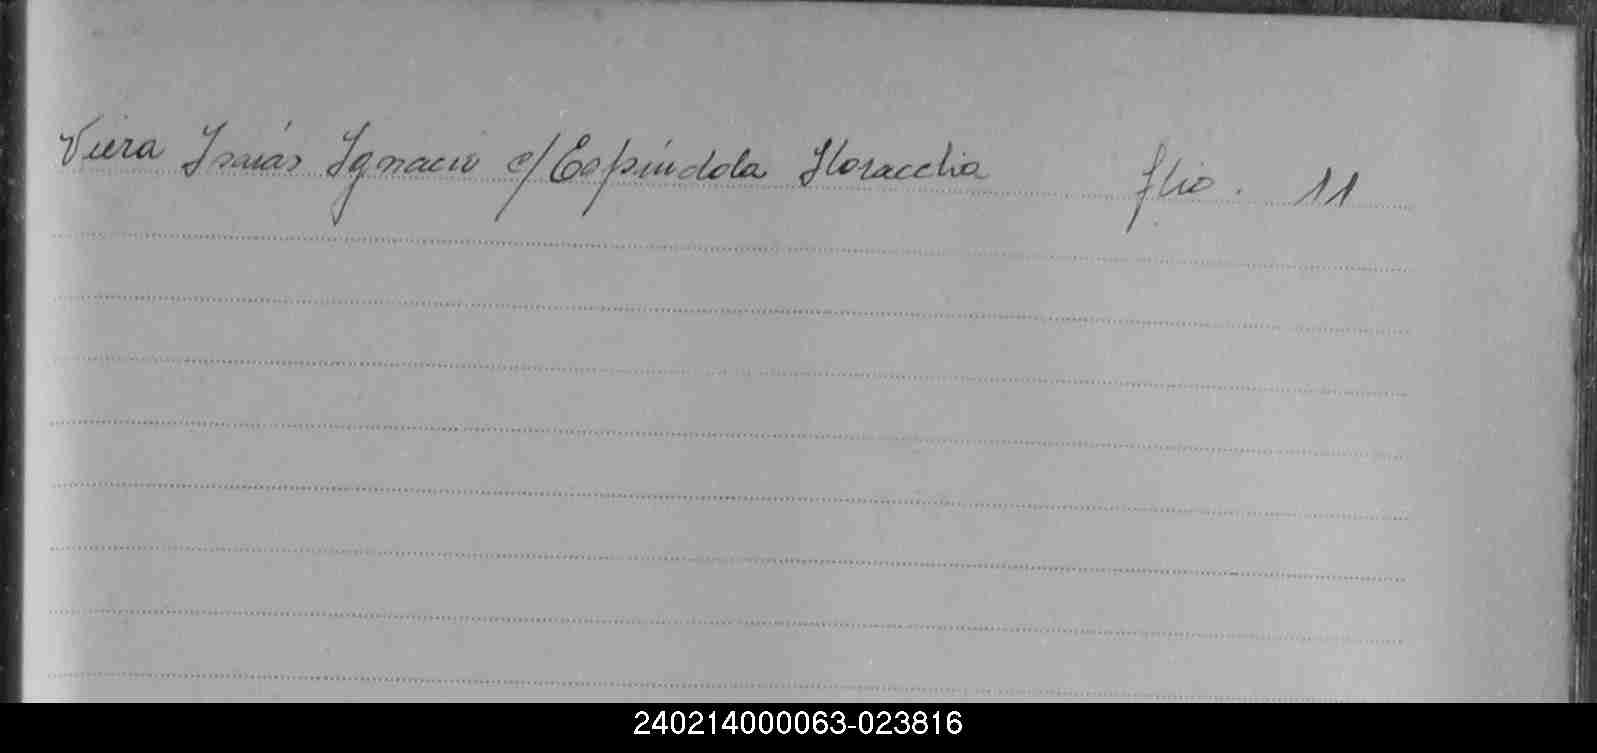 Viera Isaías Ignacio c/ Espíndola Horacelia flio. 11
240214000063-023816